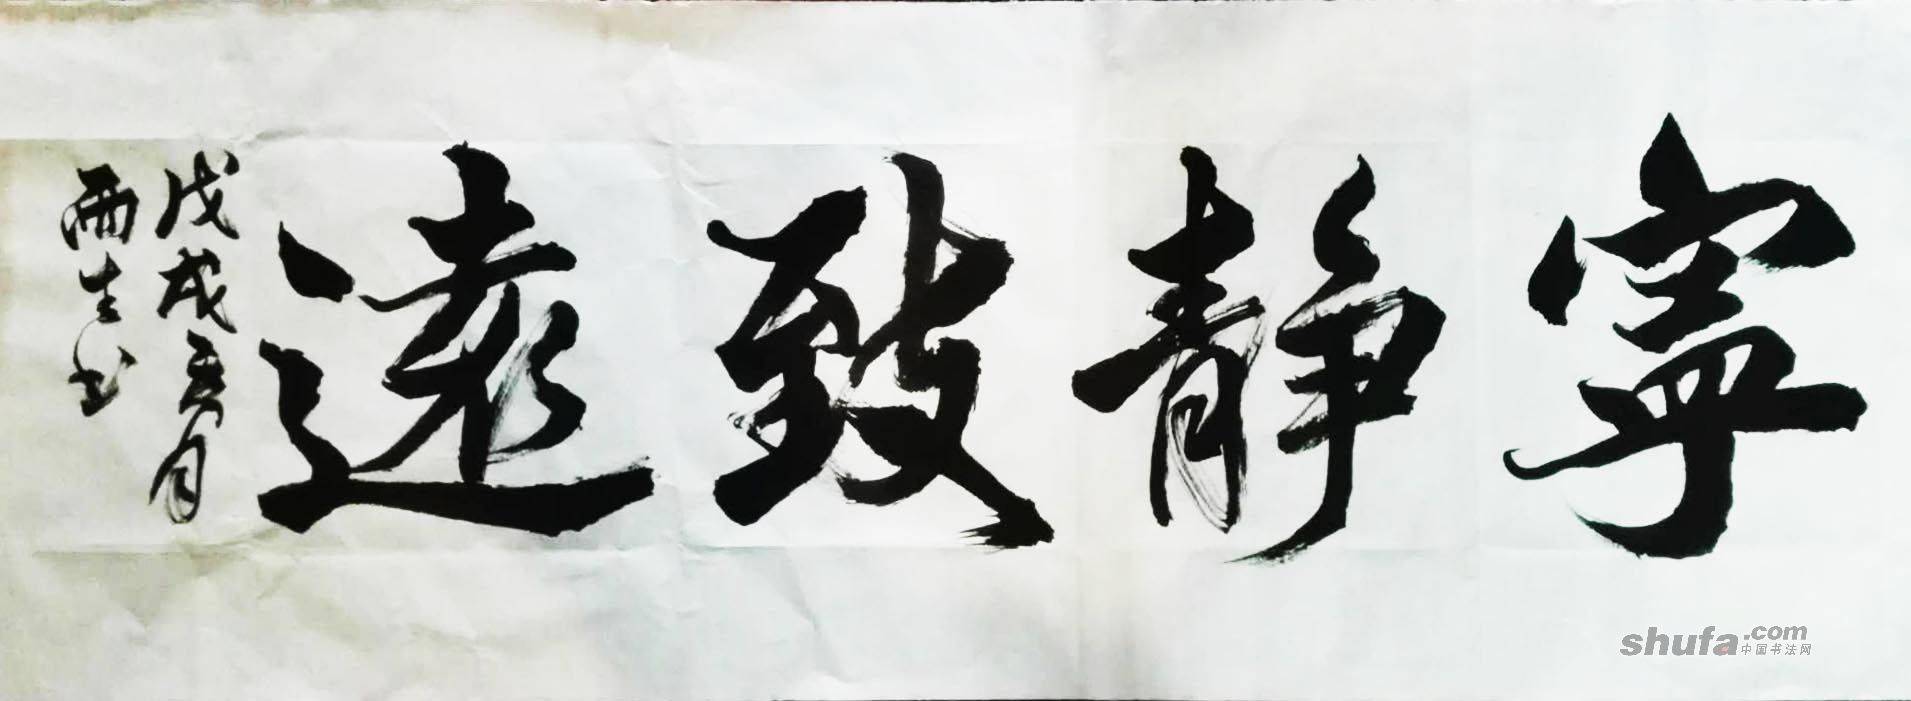 寧静致遠
戊戌吾月
雨生书
shufa.com
中国书法网